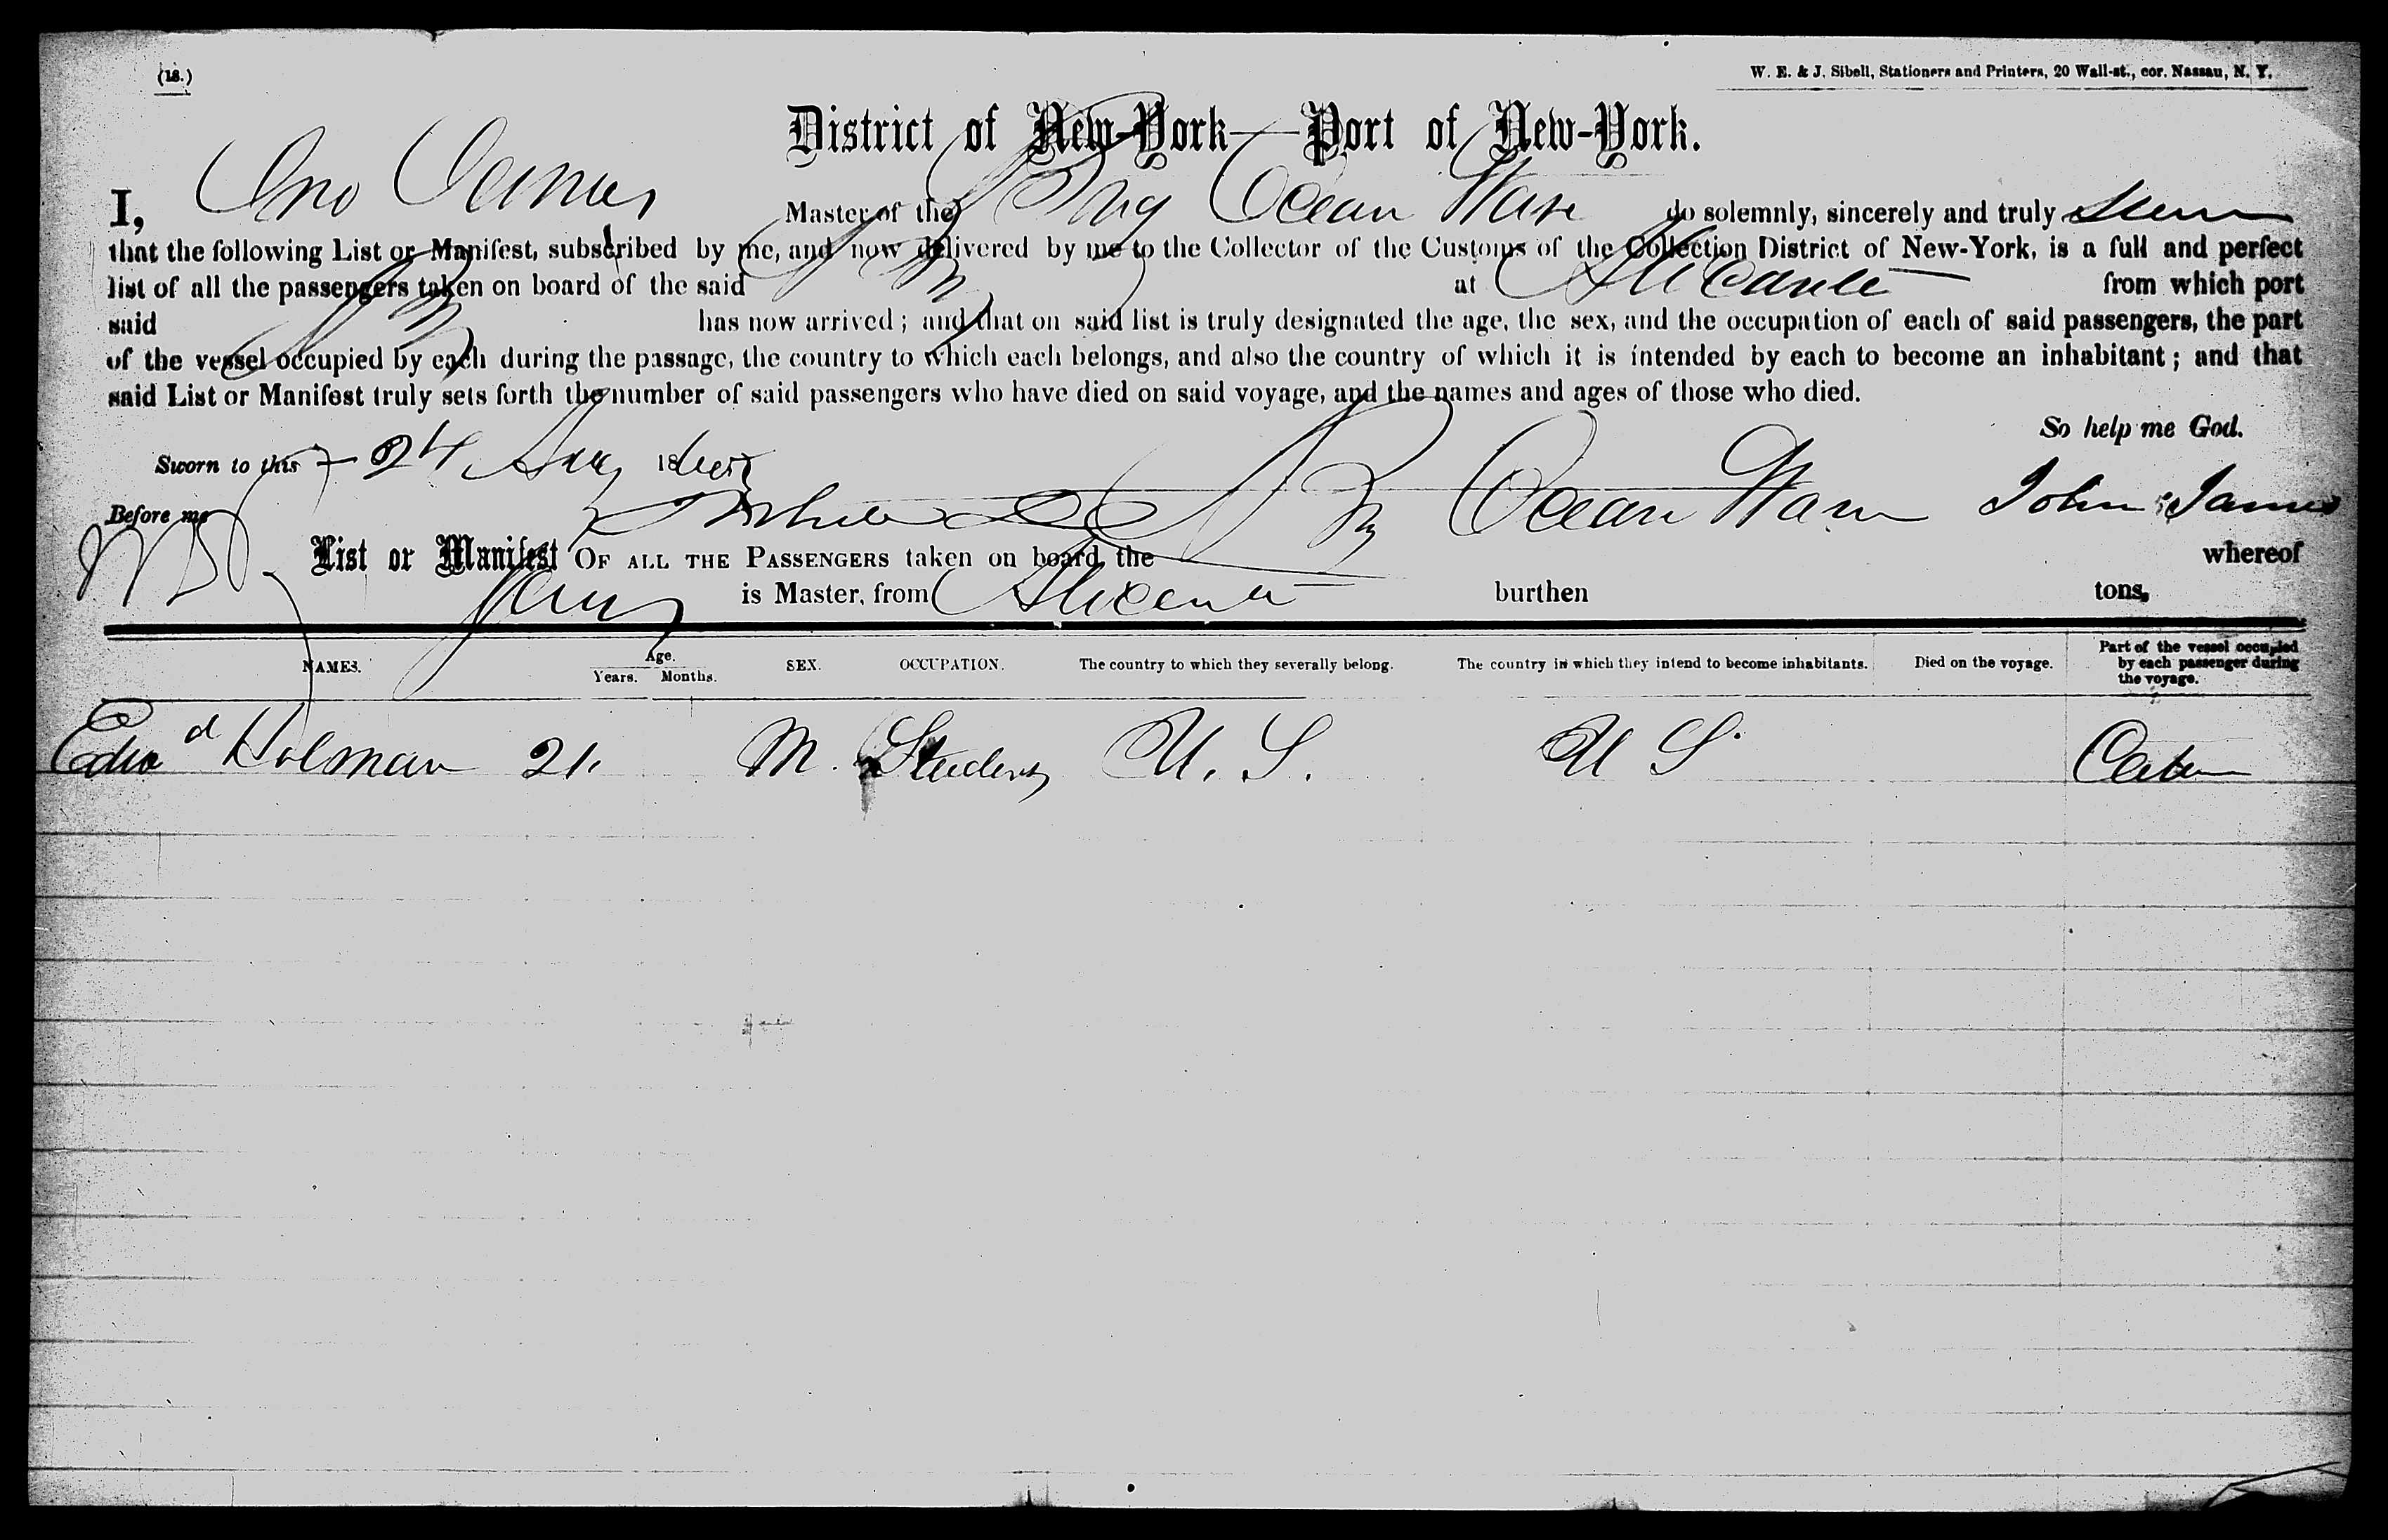 (18.)
W. E. & J. Sibell, Stationers and Printers, 20 Wall-st., cor. Nassau, N. Y.
District of New-York—Port of New-York.
I, Jno James Master of the Brig Ocean Wave do solemnly, sincerely and truly swear
that the following List or Manifest, subscribed by me, and now delivered by me to the Collector of the Customs of the Collection District of New-York, is a full and perfect
list of all the passengers taken on board of the said Brig at Alicante from which port
said Brig has now arrived; and that on said list is truly designated the age, the sex, and the occupation of each of said passengers, the part
of the vessel occupied by each during the passage, the country to which each belongs, and also the country of which it is intended by each to become an inhabitant; and that
said List or Manifest truly sets forth the number of said passengers who have died on said voyage, and the names and ages of those who died.
So help me God.
Sworn to this 24 Aug 18
Before me
John James
List or Manifest OF ALL THE PASSENGERS taken on board the Brig Ocean Wave whereof
James is Master, from Alicante burthen tons,
NAMES. Age. Years. Months. SEX. OCCUPATION. The country to which they severally belong. The country in which they intend to become inhabitants. Died on the voyage. Part of the vessel occupied by each passenger during the voyage.
Edwd Holman 21. M. Student U. S. U S. Cabin